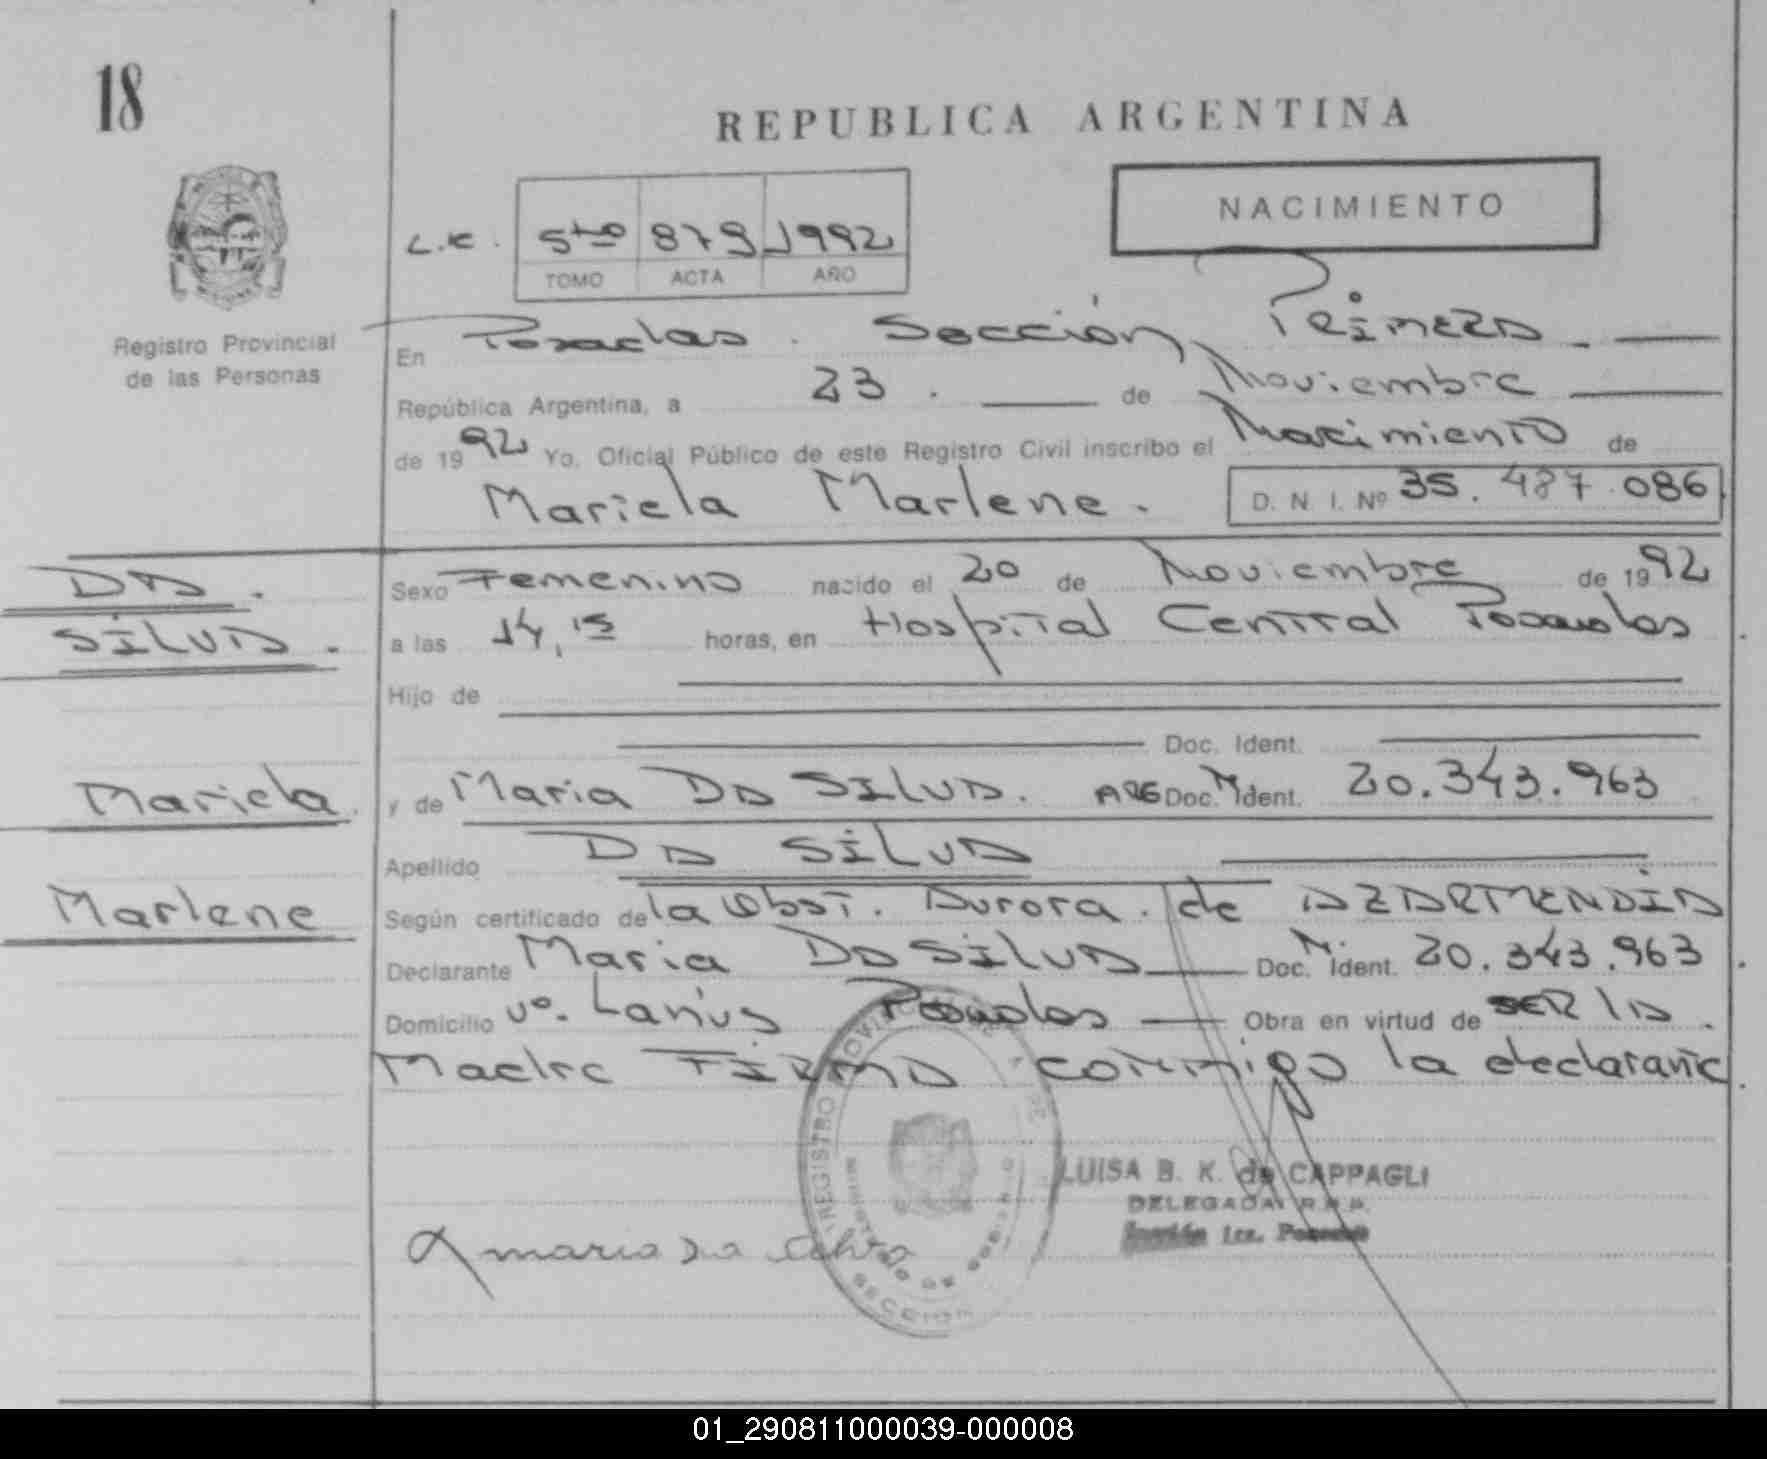 18
REPUBLICA ARGENTINA
NACIMIENTO
L.E. 5to 879 1992
TOMO ACTA AÑO
Registro Provincial
de las Personas
En Posadas. Sección Primera.
República Argentina, a 23. de Noviembre
de 1992 Yo, Oficial Público de este Registro Civil inscribo el Nacimiento de
Mariela Marlene. D. N. I. Nº 35.487.086
DA.
SILVA.
Mariela
Marlene
Sexo Femenino nacido el 20 de Noviembre de 1992
a las 14,15 horas, en Hospital Central Posadas.
Hijo de
Doc. Ident.
y de Maria DA SILVA. ARG Doc. N Ident. 20.343.963
Apellido DA SILVA
Según certificado de la Obst. Aurora. de AZARMENDIA
Declarante Maria DA SILVA Doc. N. Ident. 20.343.963.
Domicilio Vº. Lanús Posadas Obra en virtud de SER LA.
Madre FIRMA conmigo la declarante.
LUISA B. K. de CAPPAGLI
DELEGADA R.P.P.
Sección 1ra. Posadas
maria Da Silva
REGISTRO PROVINCIAL DE
MINISTERIO DE GOBIERNO
SECCION
01_290811000039-000008